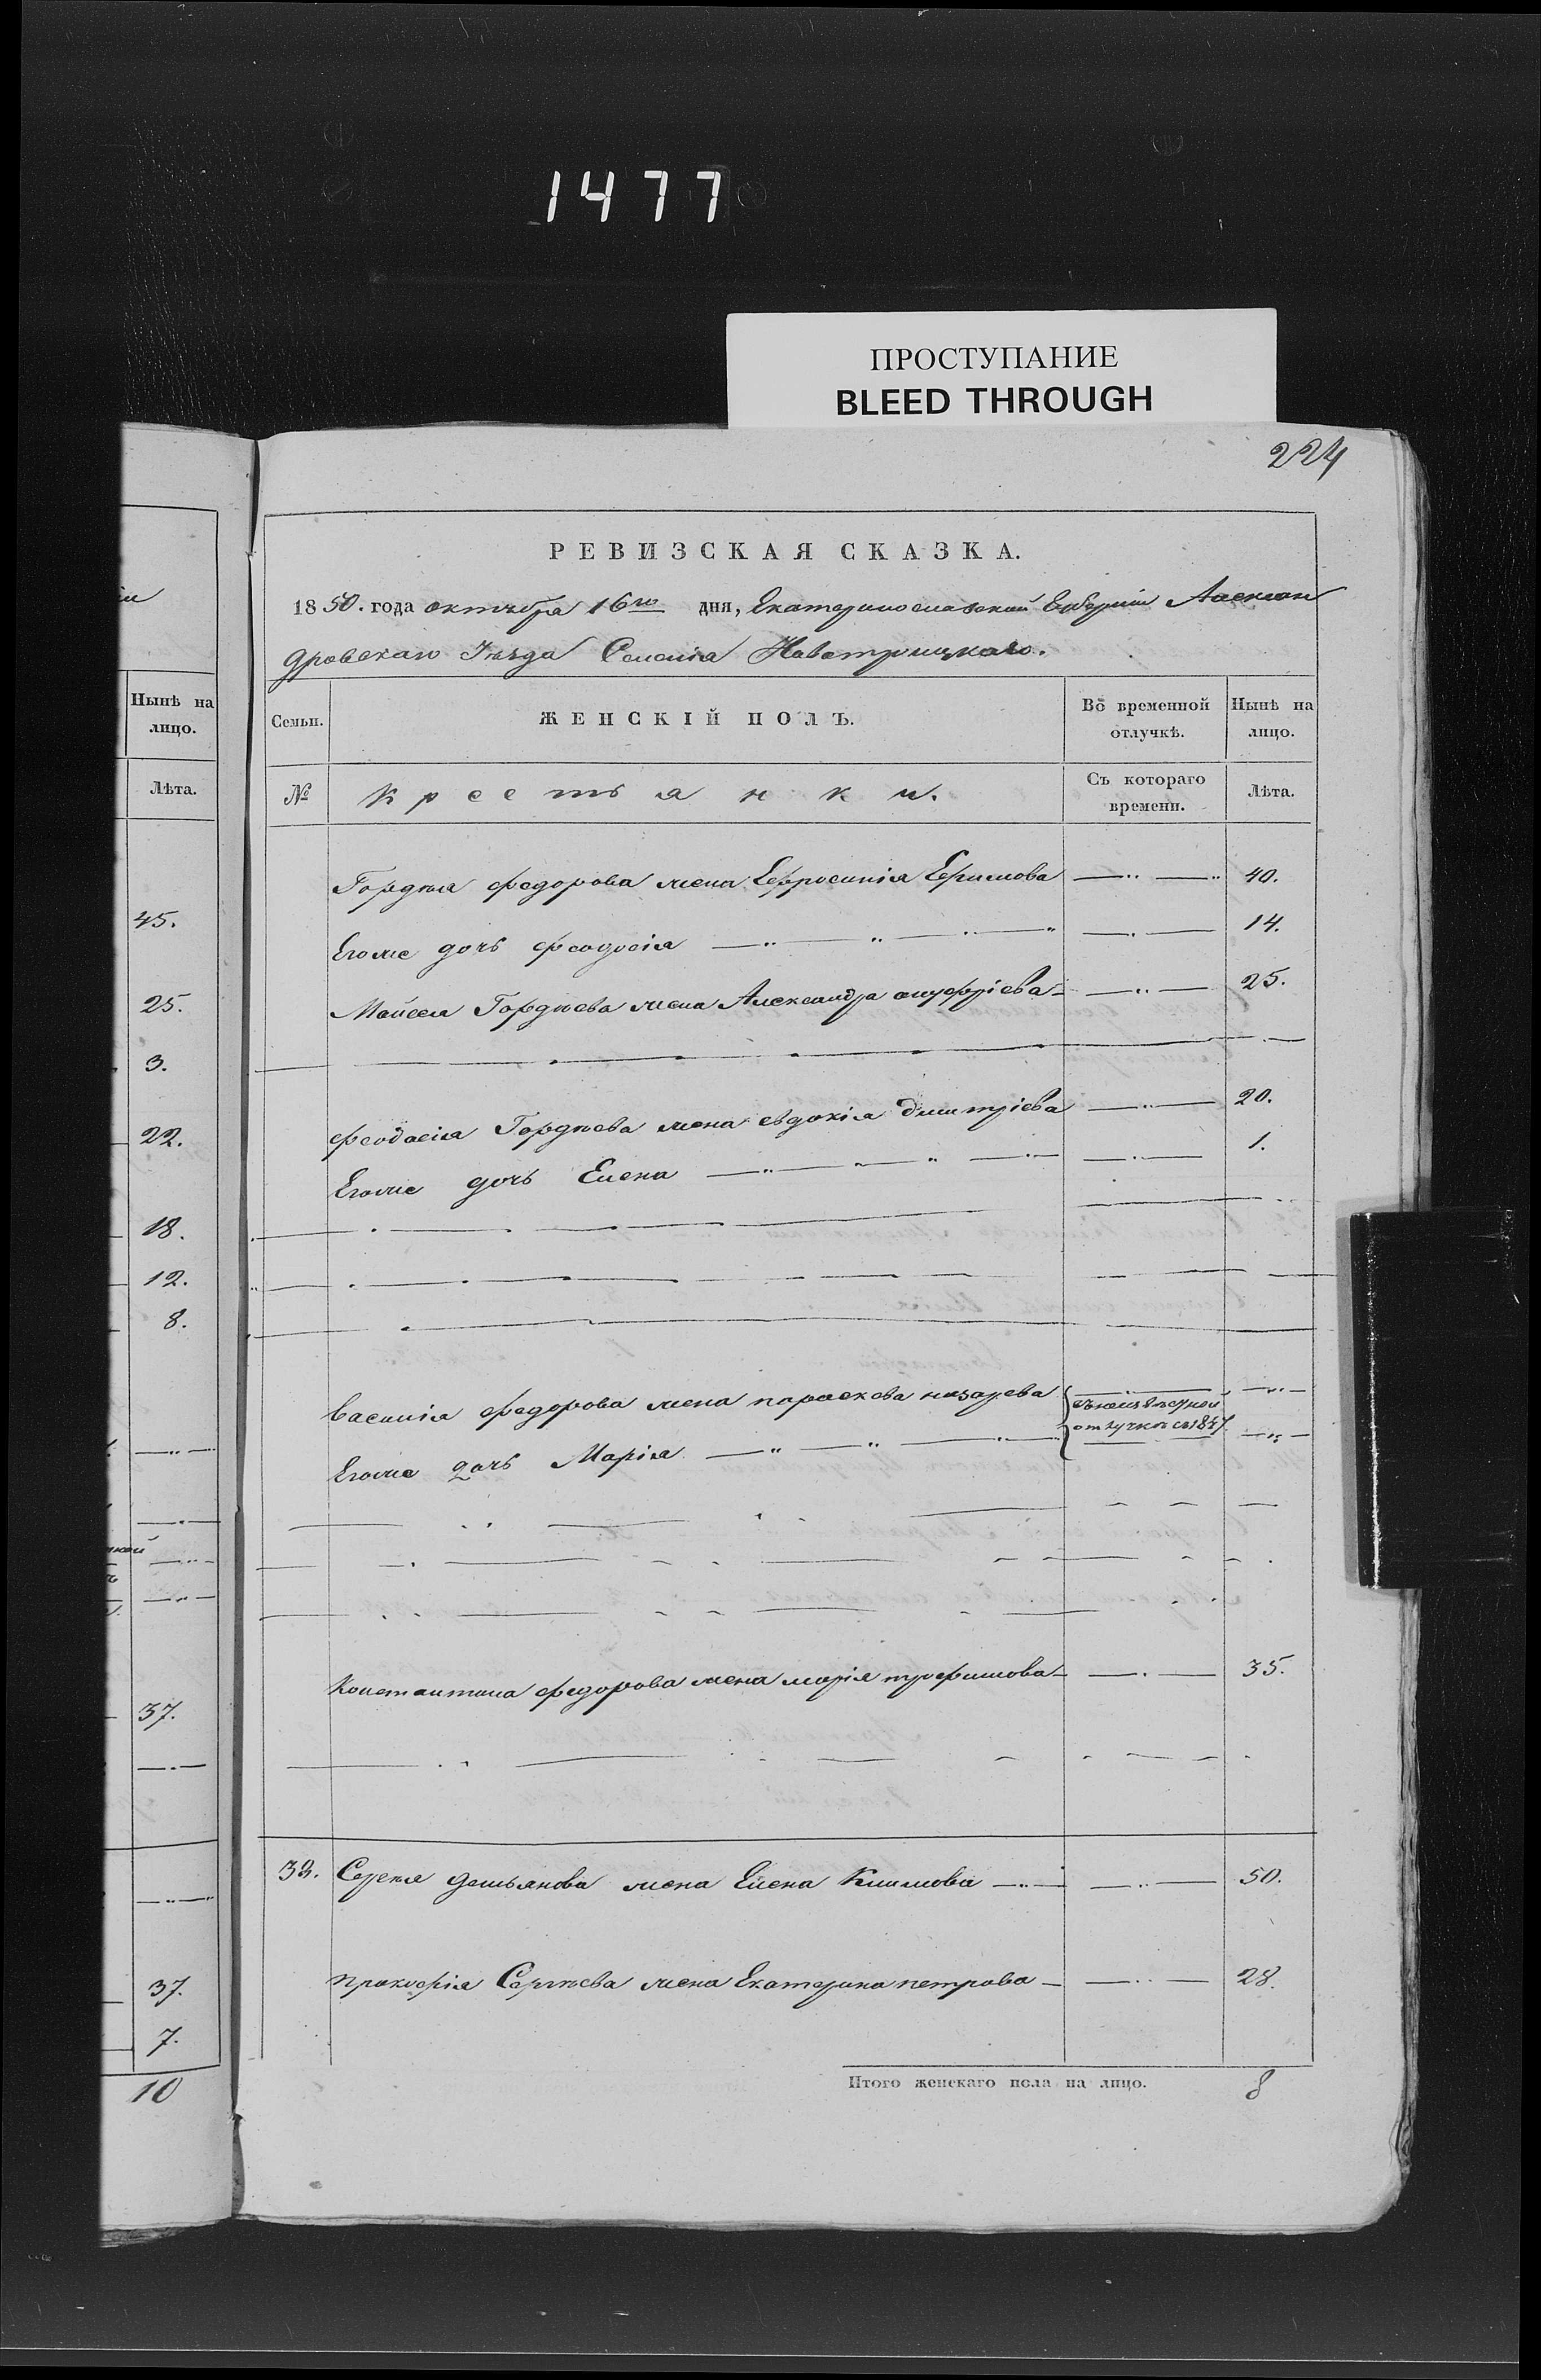 1477
ПРОСТУПАНИЕ
BLEED THROUGH
224
РЕВИЗСКАЯ СКАЗКА.
1850. года октября 16го дня, Екатеринославской Губерніи Алексан
дровскаго Уѣзда Селенія Новотроицкаго.
Нынѣ на лицо.
Лѣта.
45.
25.
3.
22.
18.
12.
8.
37.
37.
7.
10
Семьи. ЖЕНСКІЙ ПОЛЪ. Во временной отлучкѣ. Нынѣ на лицо.
№ Крестьянки. Съ котораго времени. Лѣта.
Гордѣя Федорова жена Ефросинія Ефимова 40.
Егоже дочь Феодосія 14.
Мойсея Гордѣева жена Александра ануфріева 25.
Феодосія Гордѣева жена евдокія Дмитріева 20.
Егоже дочь Елена 1.
Василія Федорова жена параскева назарева
въ неизвѣстной
отлучкѣ съ 1847.
Егоже дочь Марія
Константина Федорова жена марія трофимова 35.
32. Сергея демьянова жена Елена Климова 50.
прокофія Сергѣева жена Екатерина петрова 28.
Итого женскаго пола на лицо. 8